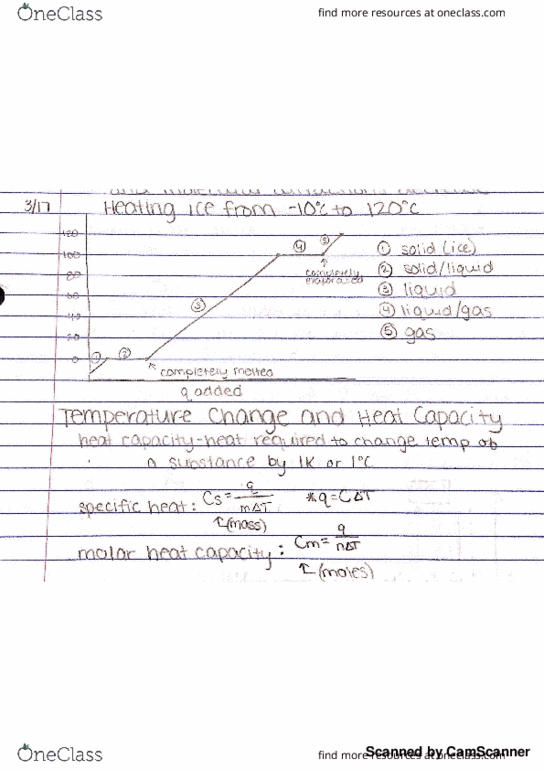 OneClass
find more resources at oneclass.com
3/17
Heating ice from -10°C to 120°C
120
100
80
60
40
20
0
① ② ③ ④ ⑤
completely evaporated
completely melted
q added
① solid (ice)
② solid/liquid
③ liquid
④ liquid/gas
⑤ gas
Temperature Change and Heat Capacity
heat capacity-heat required to change temp of
a substance by 1K or 1°C
specific heat: Cs = q/mΔT *q=CΔT
↑(mass)
molar heat capacity: Cm = q/nΔT
↑(moles)
OneClass
find more resources at oneclass.com
Scanned by CamScanner